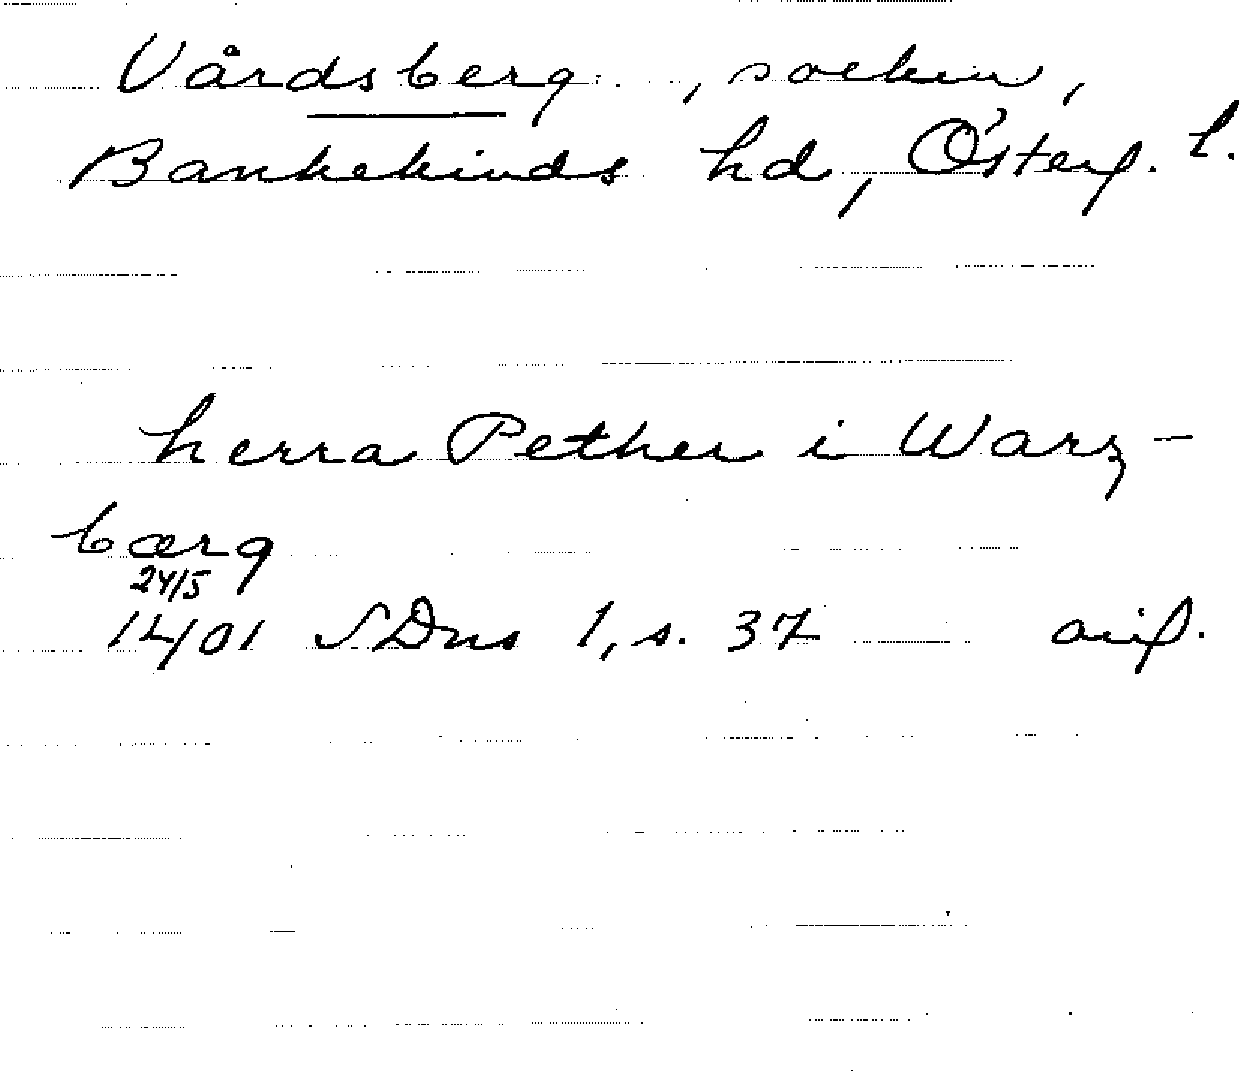 Vårdsberg, socken,
Bankekinds hd, Österg. l.
herra Pether i Warz-
bærg
24/5
1401 SDns 1, s. 37 avs.